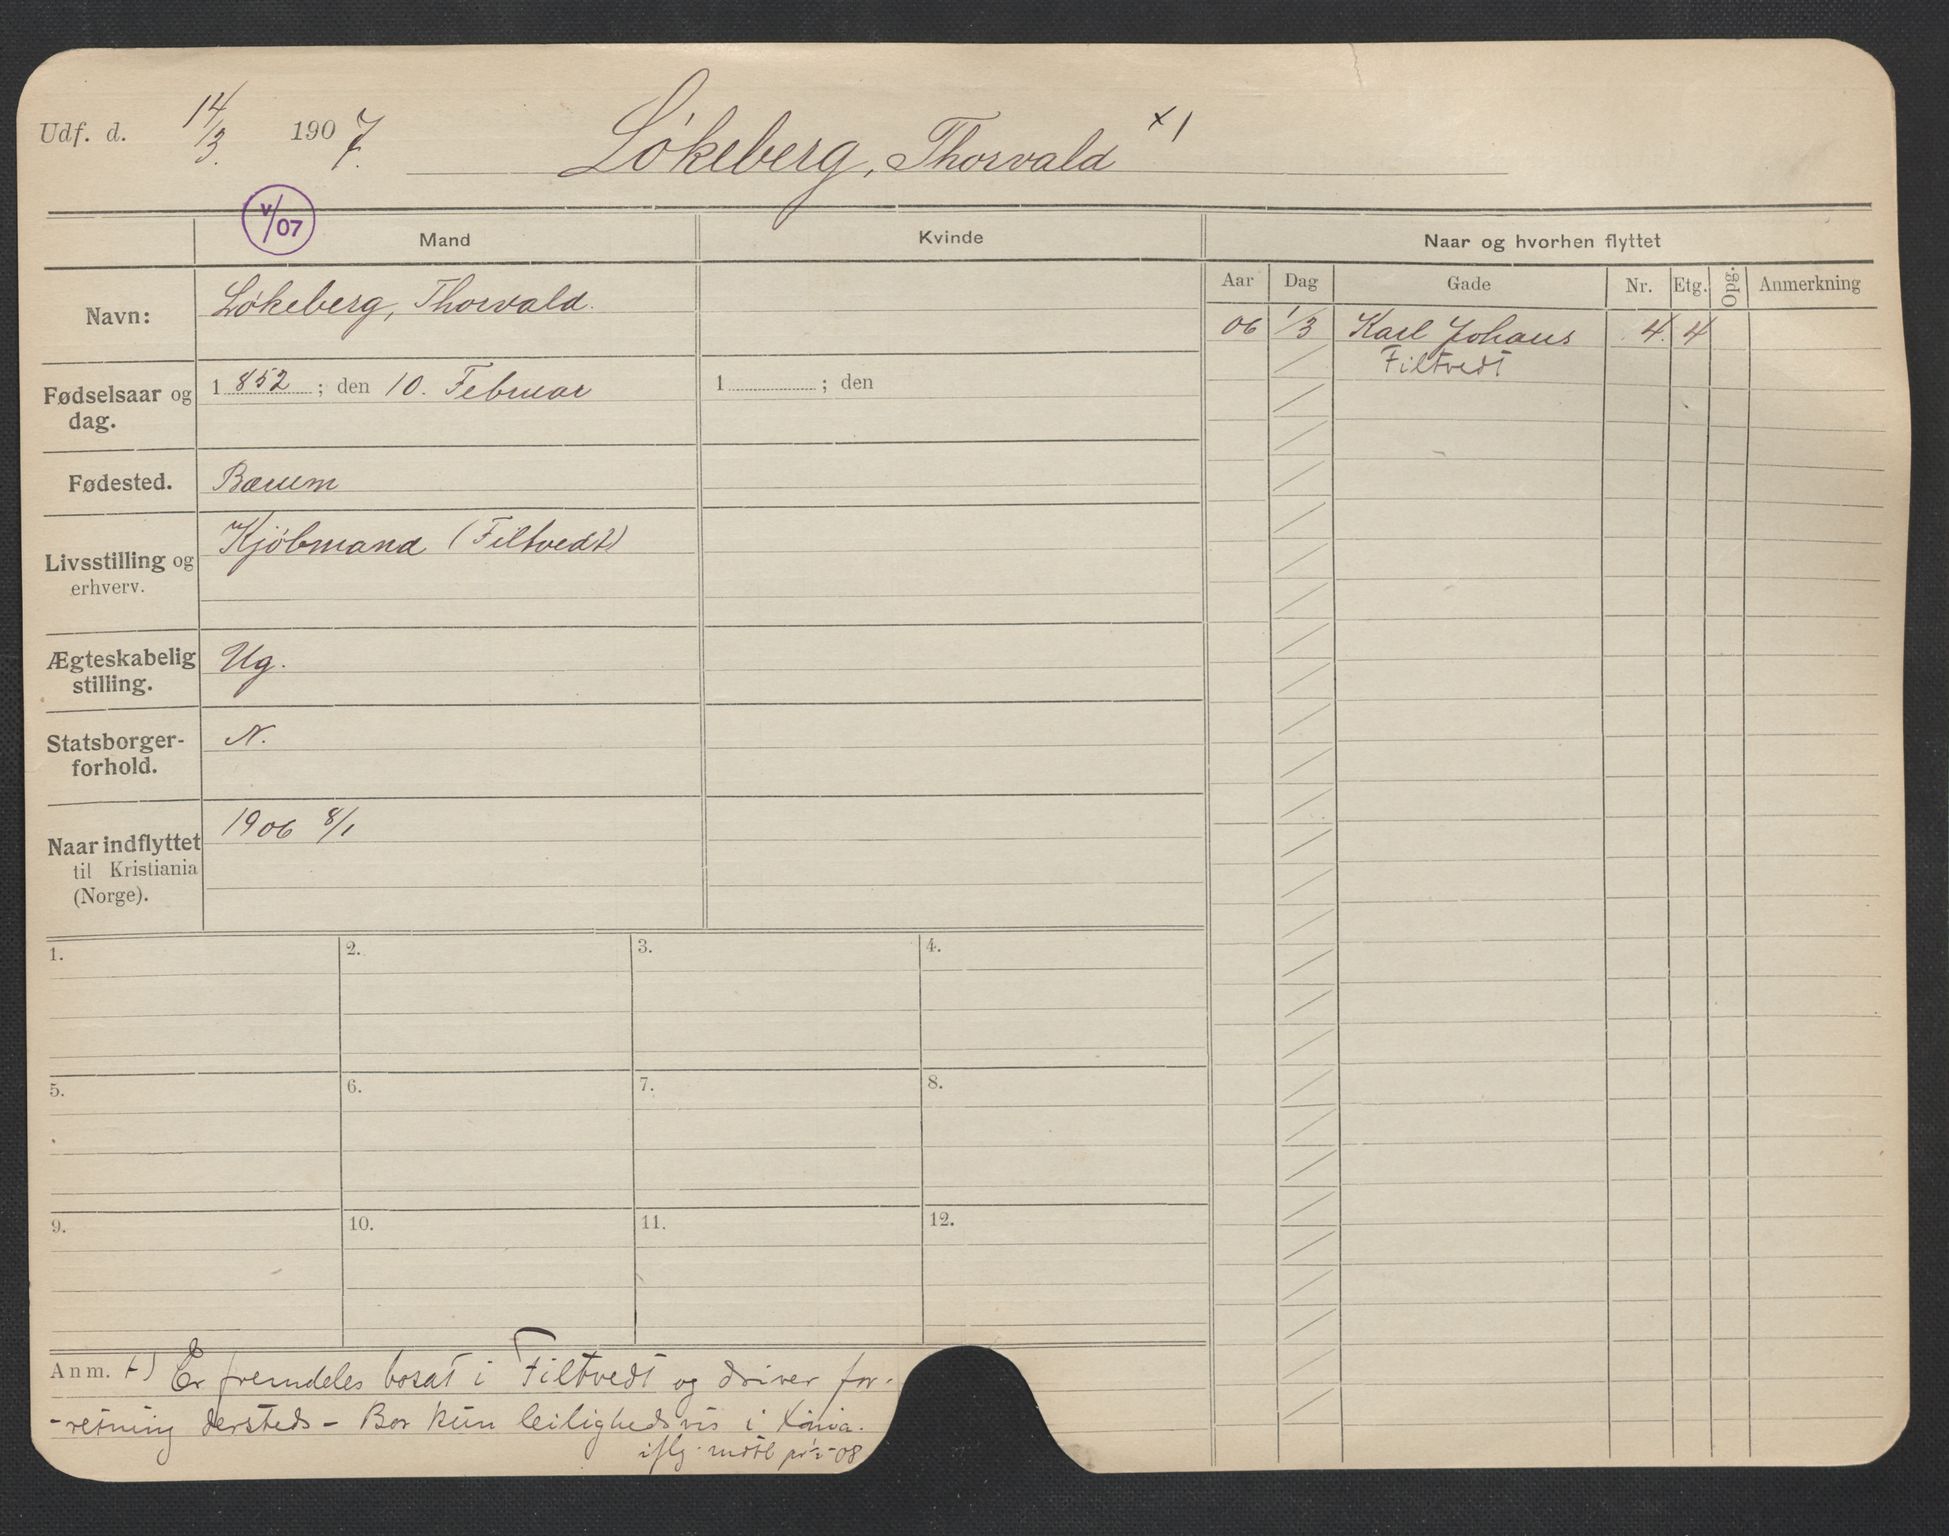 Udf. d. 14/3. 1907. Løkeberg, Thorvald x)
v/07
Mand
Kvinde
Naar og hvorhen flyttet
Aar Dag Gade Nr. Etg. Opg. Anmerkning
Navn: Løkeberg, Thorvald.
06 1/3 Karl Johans 4. 4
Filtvedt
Fødselsaar og dag. 1852; den 10. Februar
1 ; den
Fødested. Bærum
Livsstilling og erhverv. Kjøbmand (Filtvedt)
Ægteskabelig stilling. Ug.
Statsborger-forhold. N.
Naar indflyttet til Kristiania (Norge). 1906 8/1
1. 2. 3. 4.
5. 6. 7. 8.
9. 10. 11. 12.
Anm. +) Er fremdeles bosat i Filtvedt og driver for-
-retning dersteds - Bor kun leilighedsvis i Xania.
iflg. 08